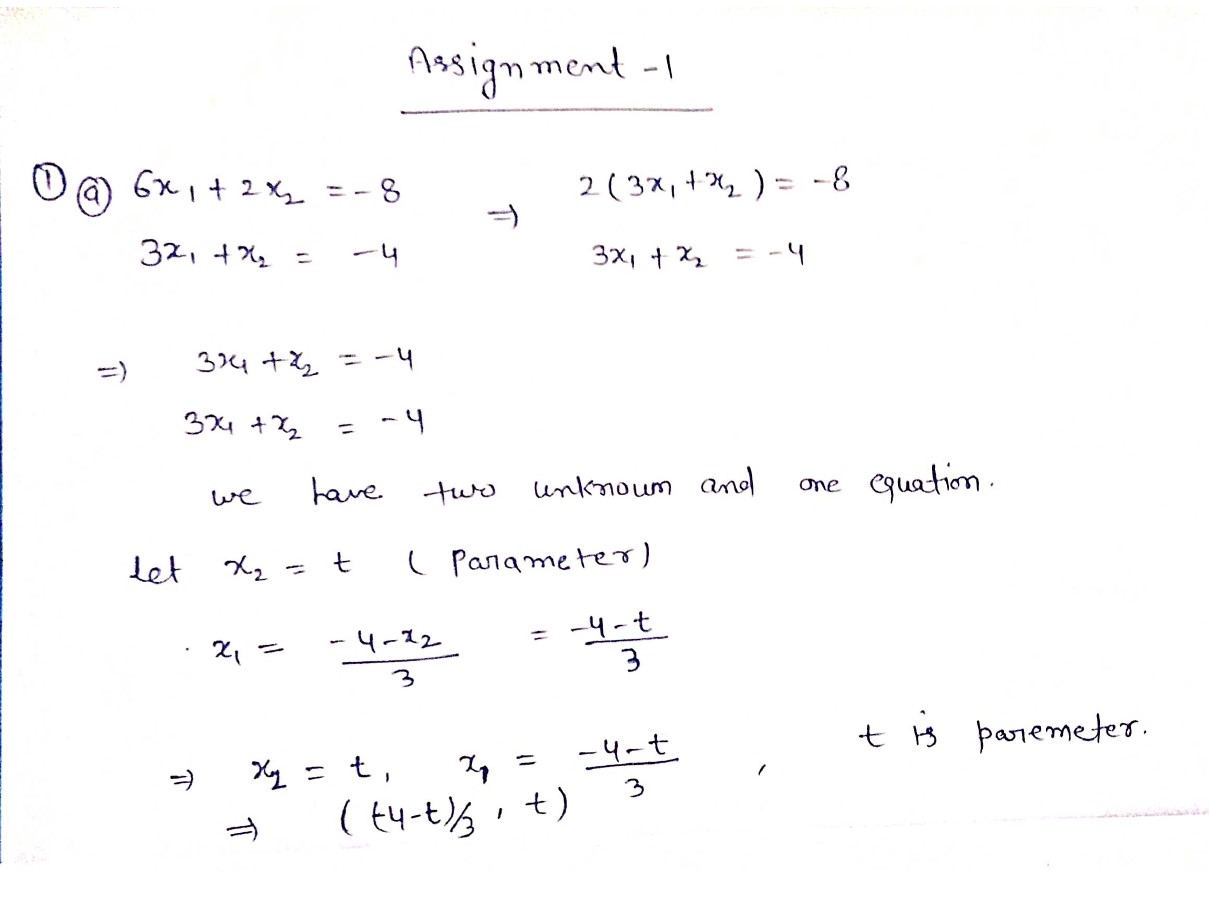 Assignment -1
① ⓐ 6x₁ + 2x₂ = -8 ⇒ 2(3x₁ + x₂) = -8
3x₁ + x₂ = -4 3x₁ + x₂ = -4
⇒ 3x₁ + x₂ = -4
3x₁ + x₂ = -4
we have two unknown and one equation.
Let x₂ = t (Parameter)
x₁ = (-4-x₂)/3 = (-4-t)/3
⇒ x₂ = t, x₁ = (-4-t)/3 , t is paremeter.
⇒ ((-4-t)/3, t)